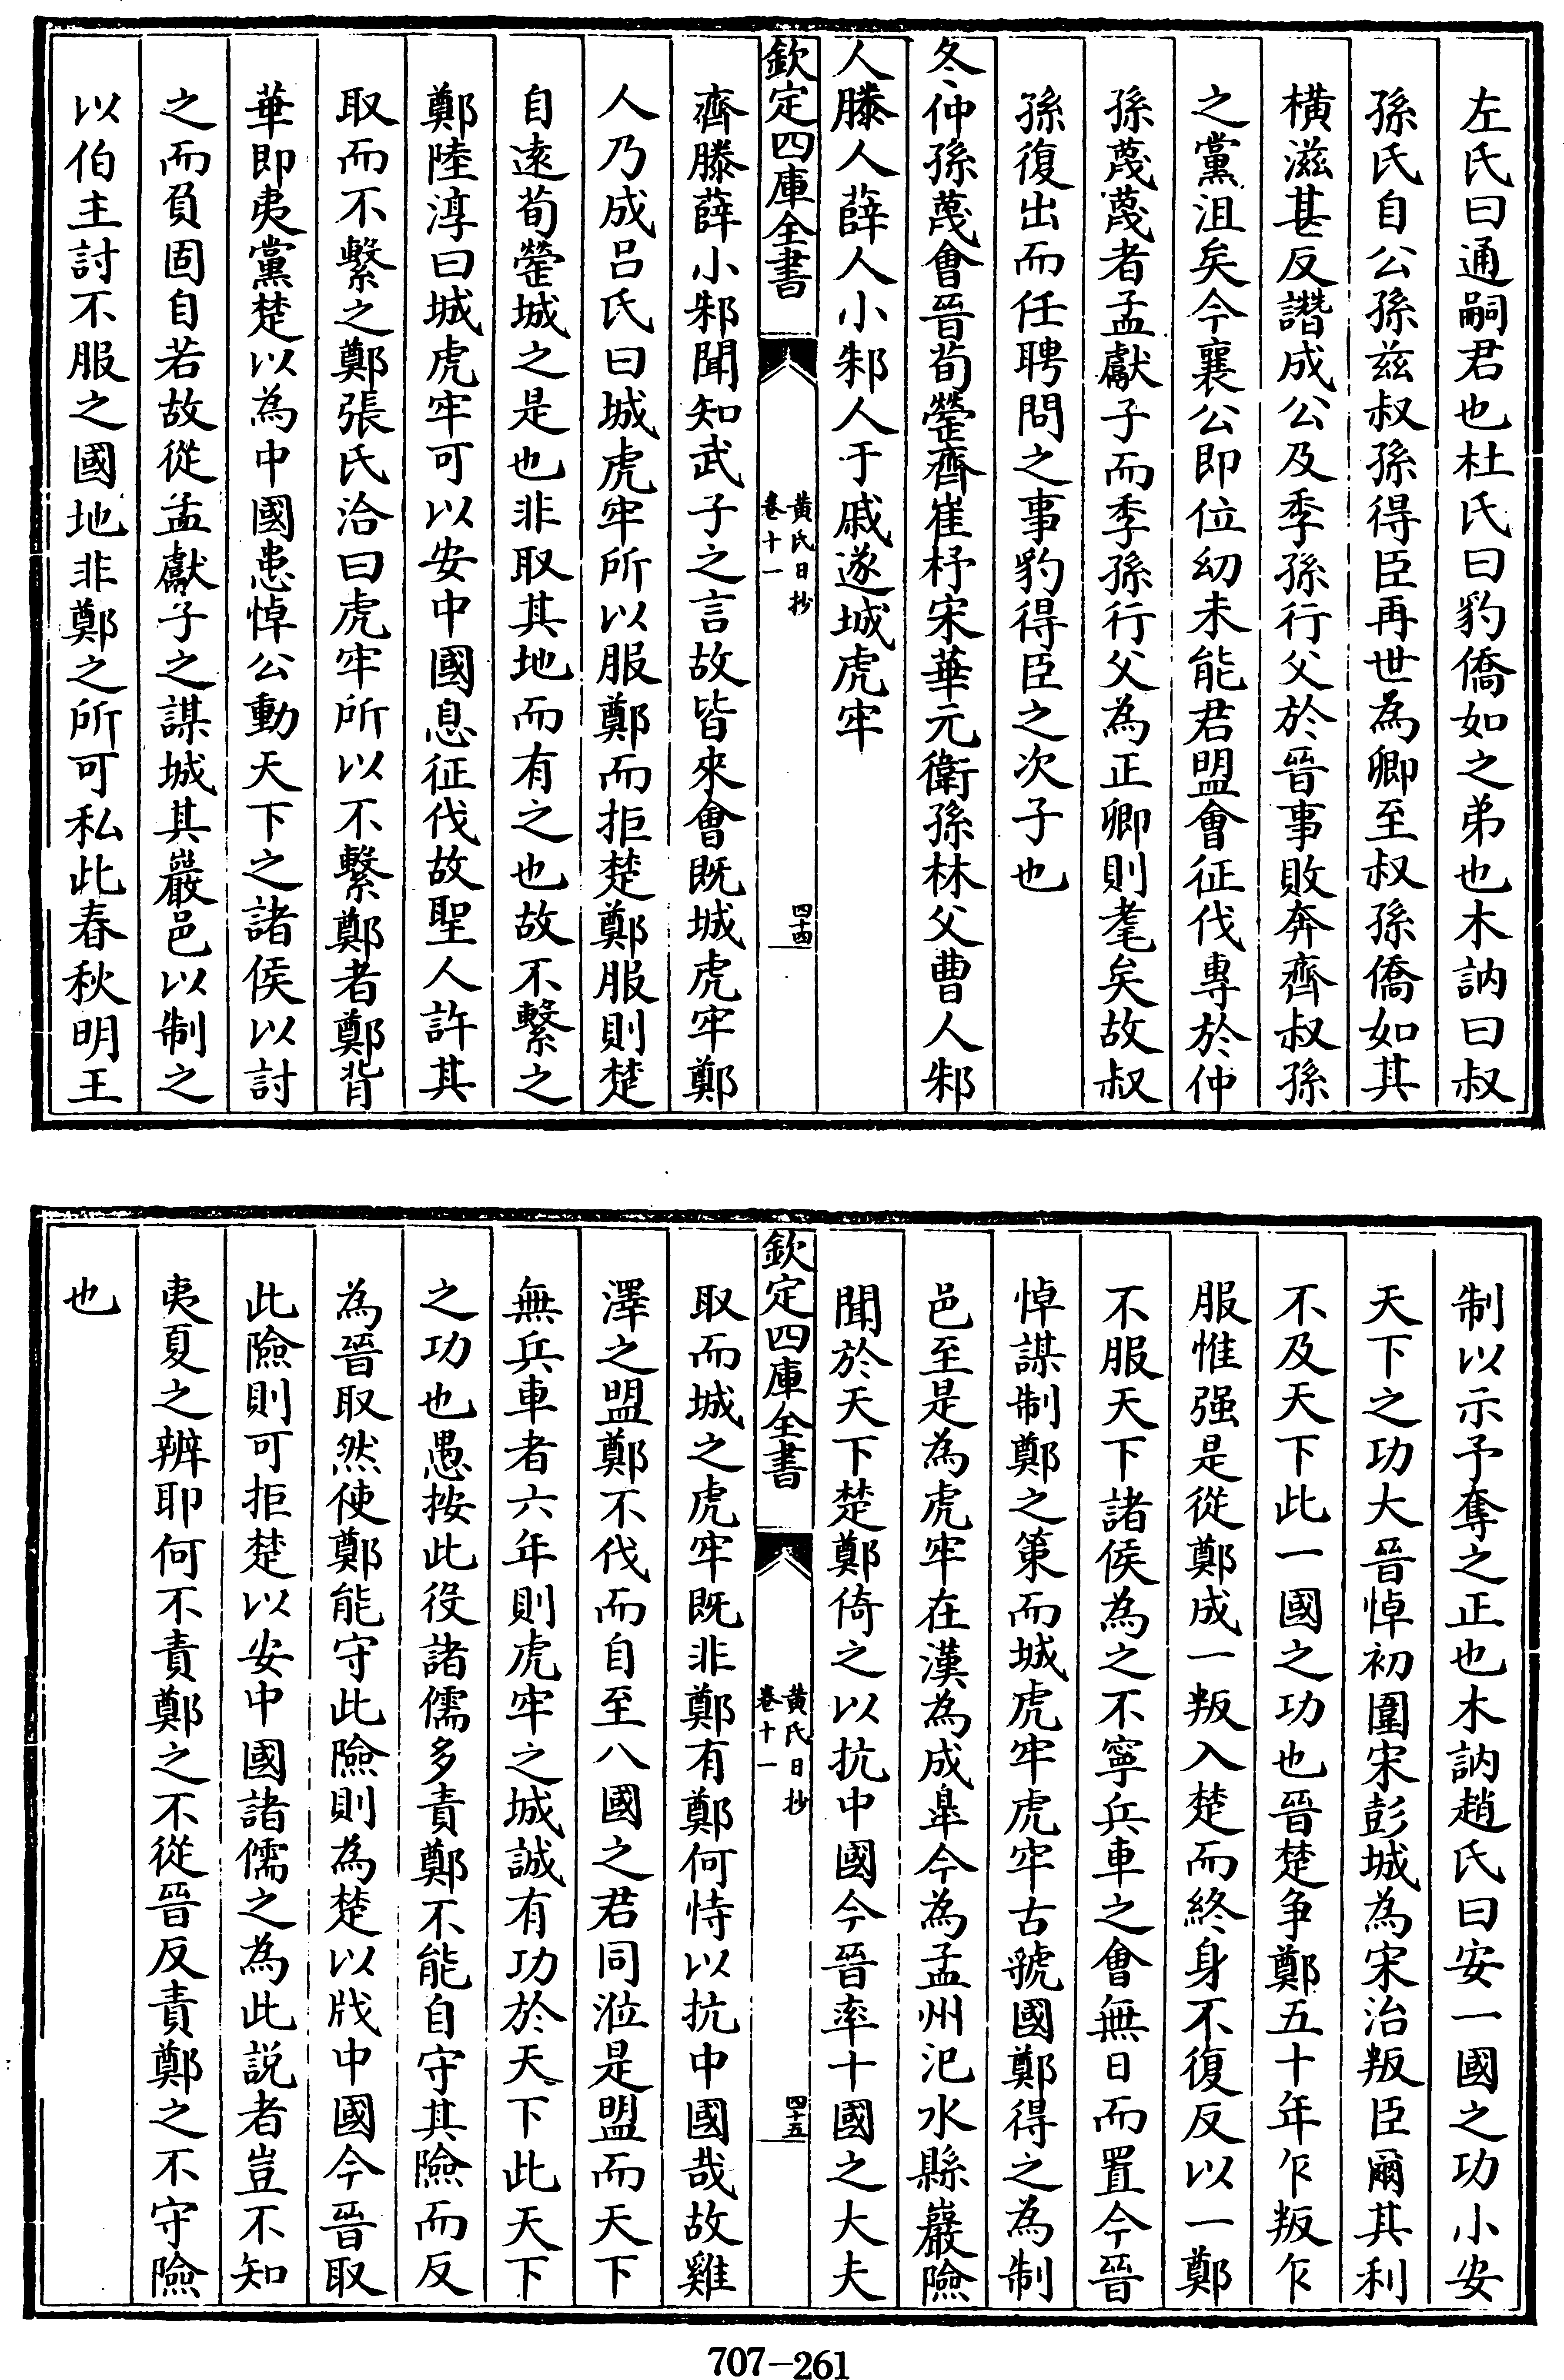 左氏曰通嗣君也杜氏曰豹僑如之弟也木訥曰叔
孫氏自公孫兹叔孫得臣再世為卿至叔孫僑如其
横滋甚反譖成公及季孫行父於晉事敗奔齊叔孫
之黨沮矣今襄公即位幼未能君盟會征伐專於仲
孫蔑蔑者孟獻子而季孫行父為正卿則耄矣故叔
孫復出而任聘問之事豹得臣之次子也
冬仲孫蔑會晉荀罃齊崔杼宋華元衛孫林父曹人邾
人滕人薛人小邾人于戚遂城虎牢
欽定四庫全書
黄氏日抄
卷十一
四十四
齊滕薛小邾聞知武子之言故皆來會既城虎牢鄭
人乃成呂氏曰城虎牢所以服鄭而拒楚鄭服則楚
自逺荀罃城之是也非取其地而有之也故不繫之
鄭陸淳曰城虎牢可以安中國息征伐故聖人許其
取而不繫之鄭張氏洽曰虎牢所以不繫鄭者鄭背
華即夷黨楚以為中國患悼公動天下之諸侯以討
之而負固自若故從孟獻子之謀城其巖邑以制之
以伯主討不服之國地非鄭之所可私此春秋明王
制以示予奪之正也木訥趙氏曰安一國之功小安
天下之功大晉悼初圍宋彭城為宋治叛臣爾其利
不及天下此一國之功也晉楚争鄭五十年乍叛乍
服惟强是從鄭成一叛入楚而終身不復反以一鄭
不服天下諸侯為之不寧兵車之會無日而置今晉
悼謀制鄭之策而城虎牢虎牢古虢國鄭得之為制
邑至是為虎牢在漢為成臯今為孟州汜水縣巖險
聞於天下楚鄭倚之以抗中國今晉率十國之大夫
欽定四庫全書
黄氏日抄
卷十一
四十五
取而城之虎牢既非鄭有鄭何恃以抗中國哉故雞
澤之盟鄭不伐而自至八國之君同涖是盟而天下
無兵車者六年則虎牢之城誠有功於天下此天下
之功也愚按此役諸儒多責鄭不能自守其險而反
為晉取然使鄭能守此險則為楚以戕中國今晉取
此險則可拒楚以安中國諸儒之為此説者豈不知
夷夏之辨耶何不責鄭之不從晉反責鄭之不守險
也
707-261